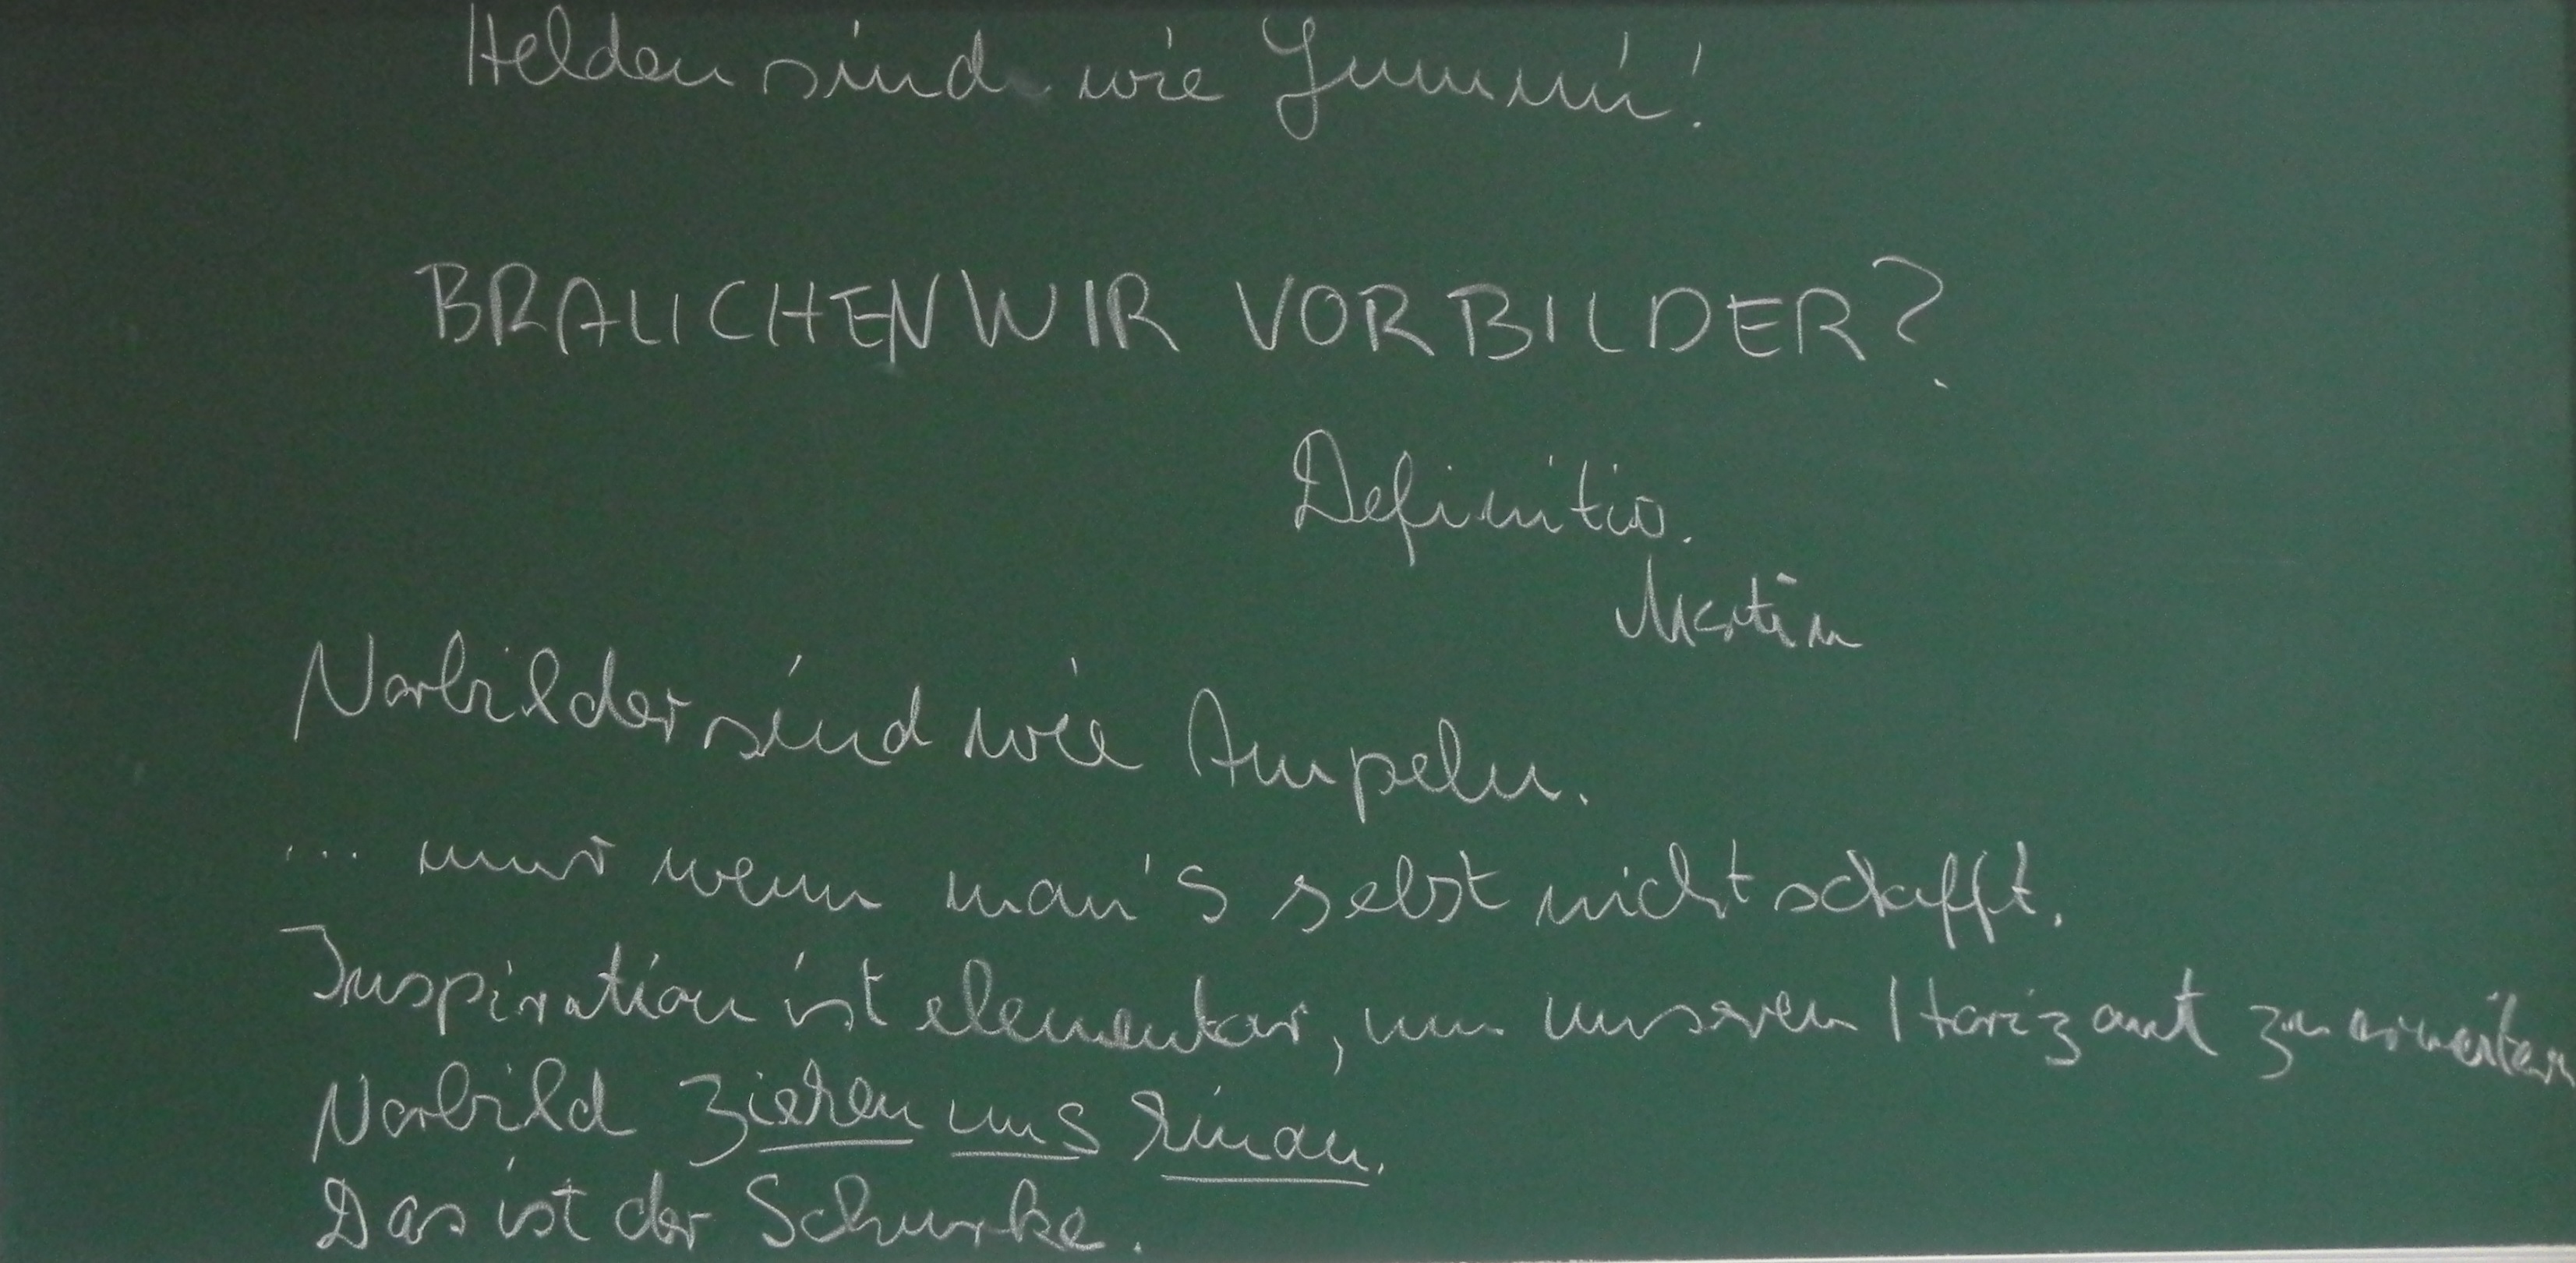 Helden sind wie Gummi!
BRAUCHEN WIR VORBILDER?
Definitio.
Martin
Vorbilder sind wie Ampeln.
... nur wenn man's selbst nicht schafft.
Inspiration ist elementar, um unseren Horizont zu erweitern
Vorbild ziehen uns hinan.
Das ist der Schurke.